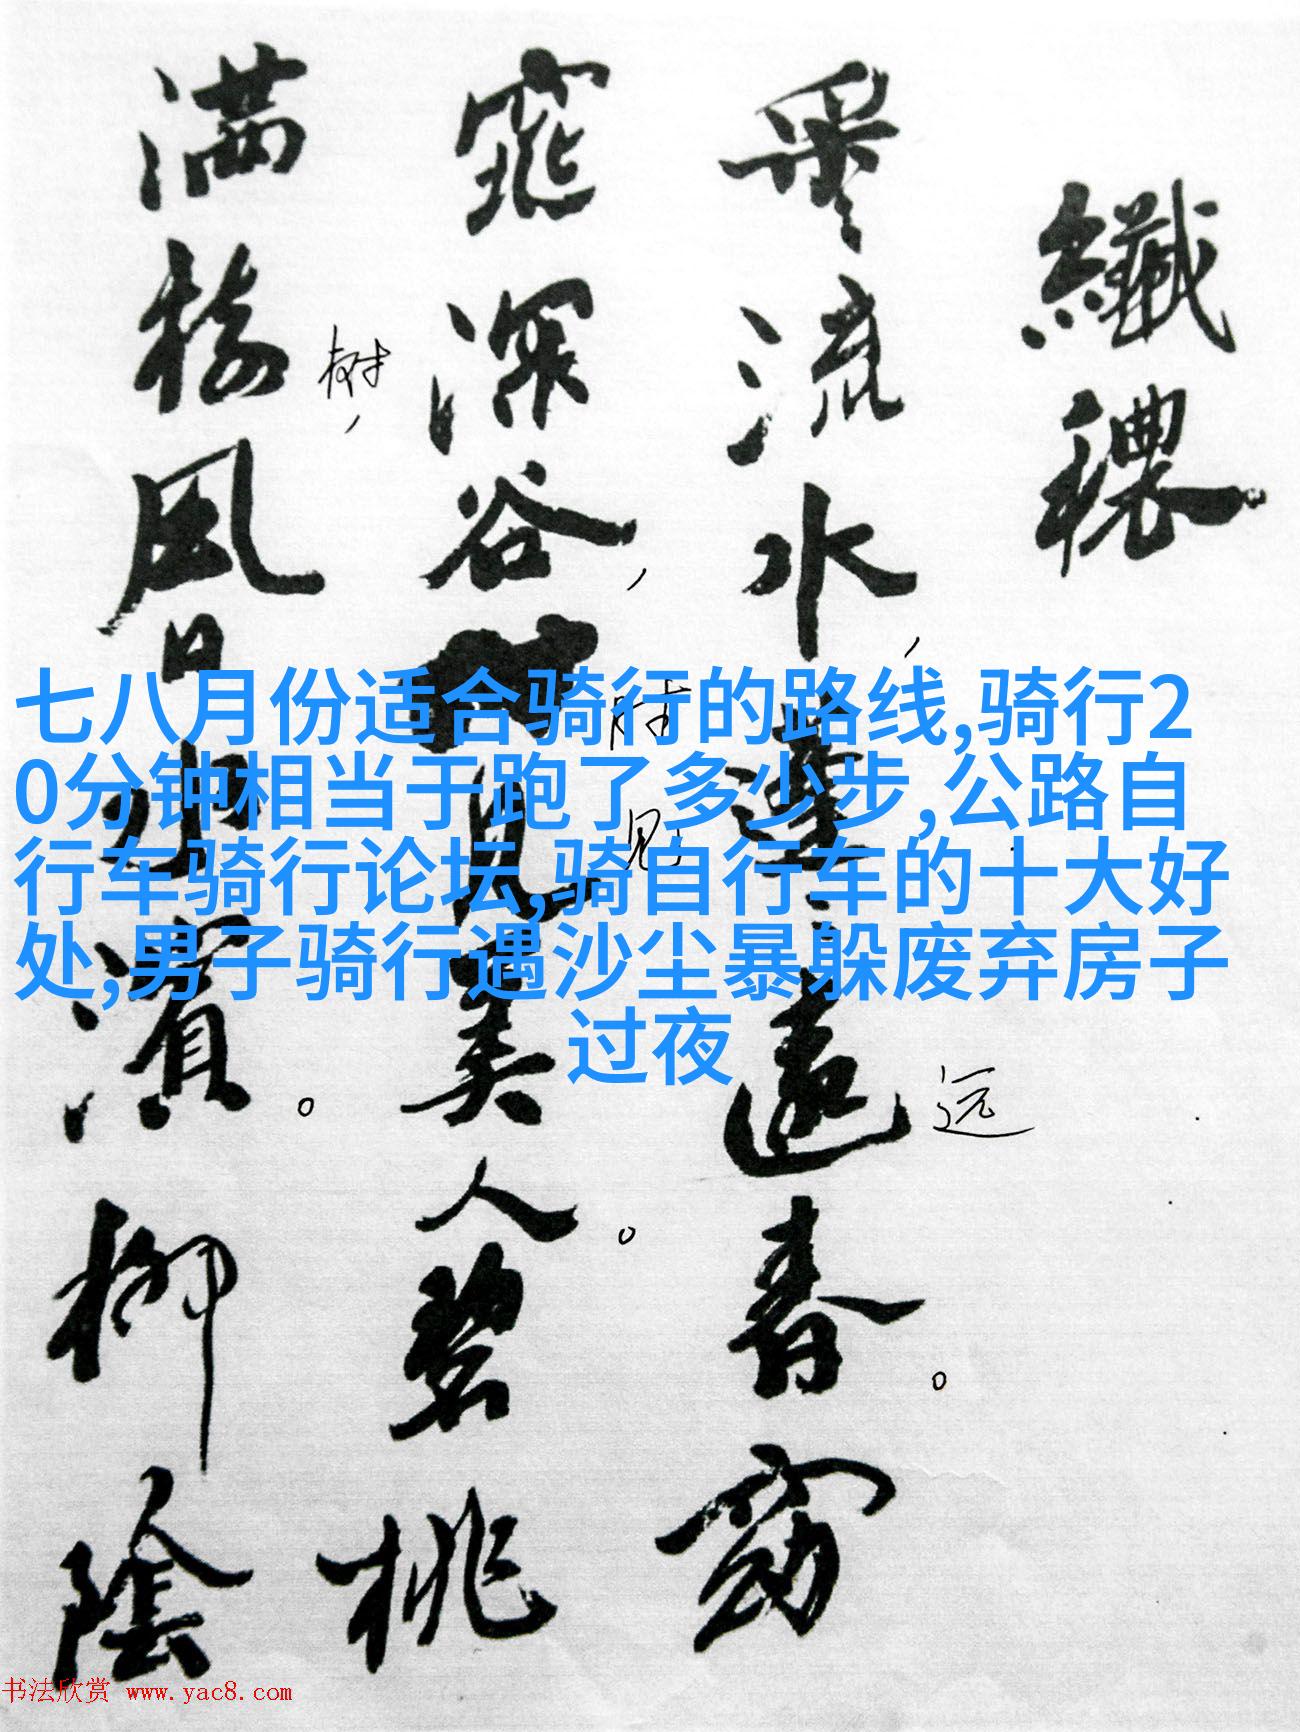 纖穠
采々流水,蓬々遠春。窈
窕深谷,時見美人。碧桃
滿樹風日水濱。柳陰
树,
时
见
远
七八月份适合骑行的路线,骑行2
0分钟相当于跑了多少步,公路自
行车骑行论坛,骑自行车的十大好
处,男子骑行遇沙尘暴躲废弃房子
过夜
书法欣赏 www.yac8.com